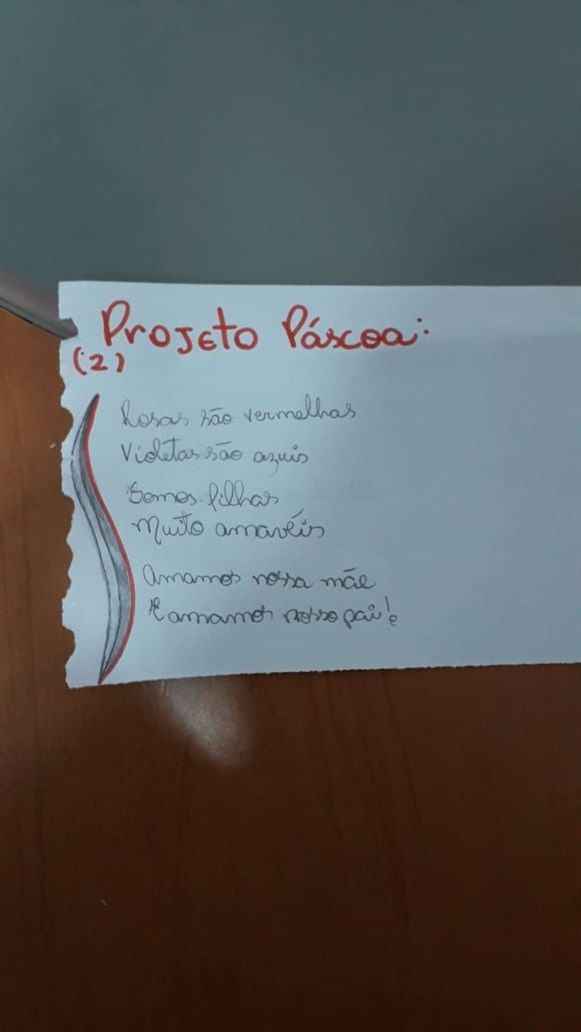 Projeto Páscoa:
(2)
Rosas são vermelhas
Violetas são azuis
Somos filhas
Muito amavéis
Amamos nossa mãe
E amamos nosso pai!